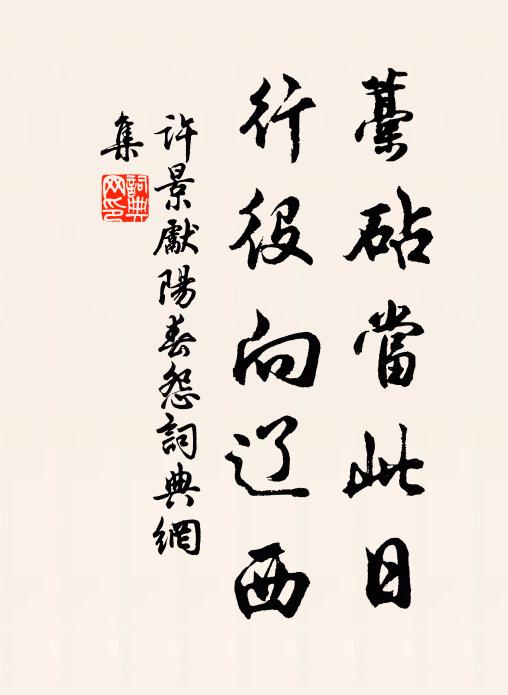 藁砧當此日
行役向辽西
許景獻陽春怨詞典網
集
詞典
网印